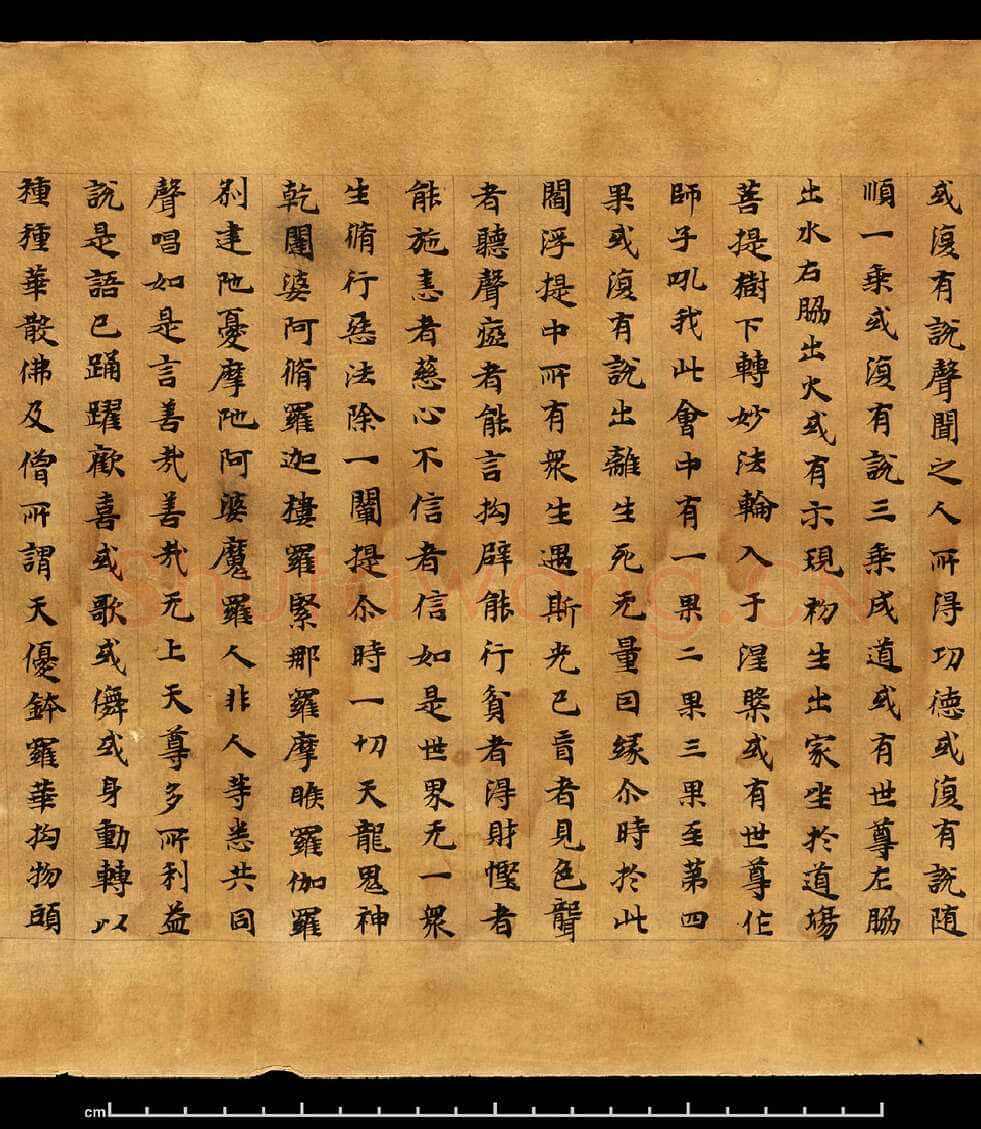 或復有說聲聞之人所得功德或復有說随
順一乗或復有說三乗成道或有世尊左脇
出水右脇出火或有示現初生出家坐於道場
菩提樹下轉妙法輪入于涅槃或有世尊作
師子吼我此會中有一果二果三果至第四
果或復有說出離生死无量因緣尒時於此
閻浮提中所有衆生遇斯光已盲者見色聾
者聽聲瘂者能言拘躃能行貧者得財慳者
能施恚者慈心不信者信如是世界无一衆
生脩行惡法除一闡提尒時一切天龍鬼神
乾闥婆阿脩羅迦樓羅緊那羅摩睺羅伽羅
刹建陁憂摩陁阿婆魔羅人非人等悉共同
聲唱如是言善哉善哉无上天尊多所利益
說是語已踊躍歡喜或歌或儛或身動轉以
種種華散佛及僧所謂天優鉢羅華拘物頭
Shufawang.CN
cm